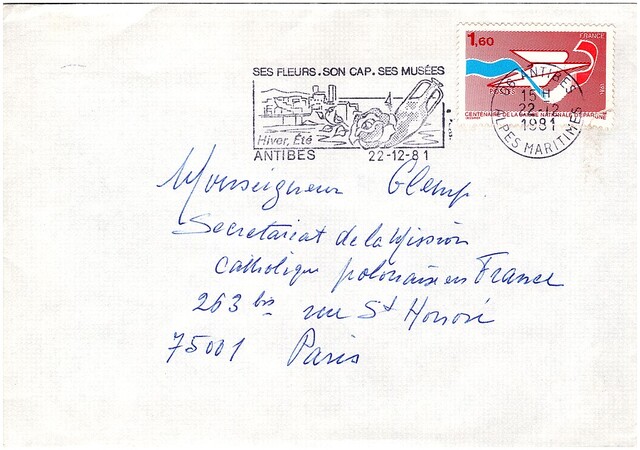 SES FLEURS. SON CAP. SES MUSÉES
Hiver, Été
ANTIBES 22-12-81
1,60
FRANCE
POSTES
1981
CENTENAIRE DE LA CAISSE NATIONALE D'EPARGNE
06 ANTIBES
15 H
22-12
1981
ALPES MARITIMES
Monseigneur Glemp.
Secretariat de la Mission
catholique polonaise en France
263 bis rue St Honoré
75001 Paris